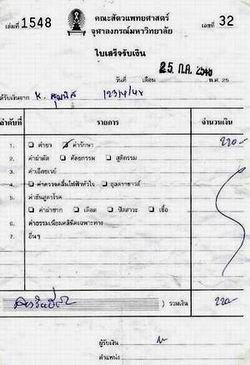 เล่มที่ 1548 คณะสัตวแพทยศาสตร์ เลขที่ 32
จุฬาลงกรณ์มหาวิทยาลัย
ใบเสร็จรับเงิน
วันที่ เดือน พ.ศ. 25
25 ก.ค.
ได้รับเงินจาก K.
ลำดับที่ รายการ จำนวนเงิน
1. ค่ายา ค่ารักษา 220-
2. ค่าผ่าตัด ศัลยกรรม สูติกรรม
3. ค่าเอ็กซเรย์
4. ค่าตรวจคลื่นไฟฟ้าหัวใจ อุลตราซาวด์
5. ค่าชันสูตรโรค
ค่าผ่าซาก เลือด ปัสสาวะ เชื้อ
6. ค่าธรรมเนียมคลินิคเฉพาะทาง
7. อื่นๆ
รวมเงิน 220-
ผู้รับเงิน
ตำแหน่ง